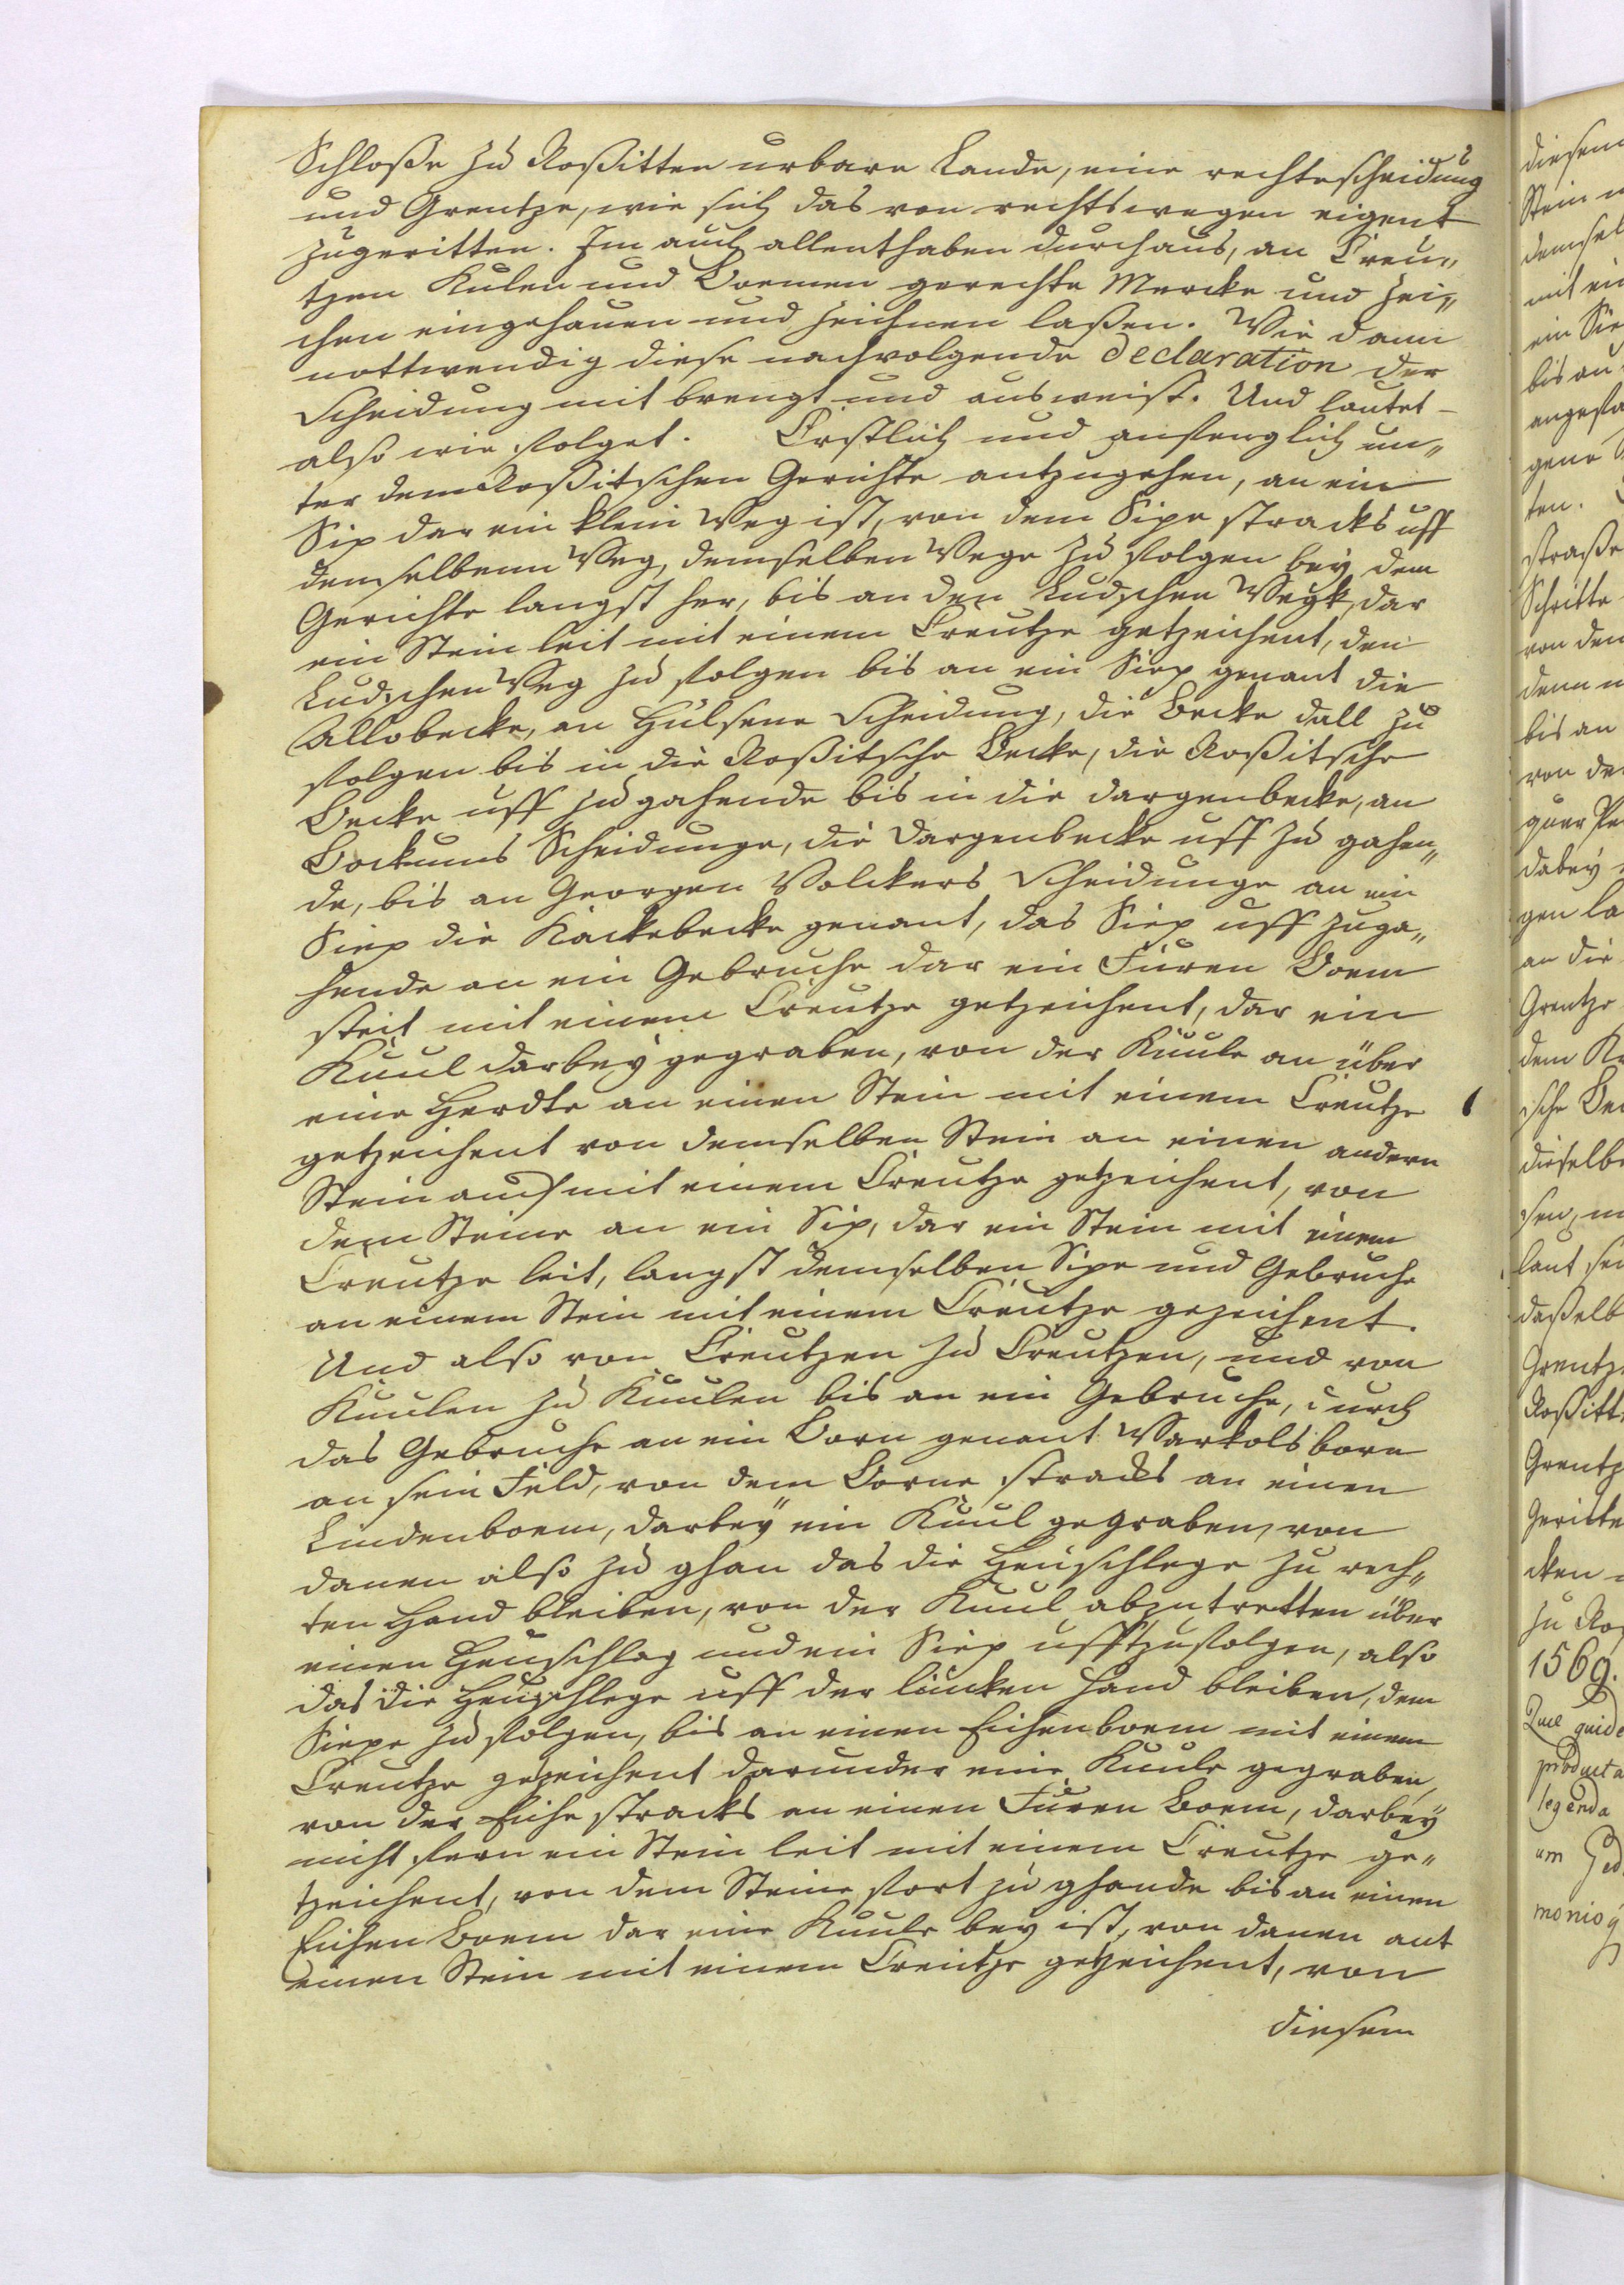 Schloße zu Roßitten urbare Lande, eine rechtescheidung
und Grentze, wie sich das von rechtswegen eigent
zugeritten. Im auch allenthalben durchaus, an Creu„
tzen Kulen und Boemen gerechte Mercke und Zei„
chen eingehauen und zeichnen laßen. Wie dann
nottwendig diese nachvolgende declaration der
Scheidung mit brengt und ausweist. Und lautet
also wie folget. Erstlich und anfenglich un„
ter dem Roßitschen Gerichte antzugehen, an ein
Sip dar ein klein Weg ist, von dem Sipe stracks uff
demselbenn Weg, demselben Wege zu folgen bey dem
Gerichte langst her, bis an den Ludschen Wegk, dar
ein Stein leit mit einem Creutze getzeichent, den
Ludschen Weg zu folgen bis an ein Siep genant die
Allobecke, an Hülsene Scheidung, die Becke dall zu
folgen bis in die Roßitsche Becke, die Roßitsche
Becke uff zu gahende bis in die dargenbecke, an
Bockums Scheidunge, die Dargenbecke uff zu gahen„
de, bis an Georgen Volckers Scheidunge an ein
Siep die Käckebecke genant, das Siep uff zuga„
hende an ein Gebruche dar ein Füren Boem
steit mit einem Creutze getzeichent, dar ein
Kuul darbey gegraben, von der Kuule an über
eine Herdte an einen Stein mit einem Creutze
getzeichent von demselben Stein an einen andern
Stein auch mit einem Creutze getzeichent, von
dem Steine an ein Sip, dar ein Stein mit einem
Creutze leit, langst demselben Sipe und Gebruche
an einem Stein mit einem Creutze gezeichent.
Und also von Creutzen zu Creutzen, und von
Kuulen zu Kuulen bis an ein Gebruche, durch
das Gebruche an ein Born genant Warkolsborn
an sein Feld, von dem Borne stracks an einen
Lindenboem, darbey ein Kuul gegraben, von
danen also zu ghan das die Heuschlege zu rech„
ten Hand bleiben, von der Kuul abzutretten über
einen Heuschlag und ein Siep ufftzufolgen, also
das die Heuschlege uff der lincken Hand bleiben, dem
Siepe zu folgen, bis an einen Eichenboem mit einem
Creutze gezeichent darunder eine Kuule gegraben,
von der Eiche stracks an einen Füren Boem, darbey
nicht fern ein Stein leit mit einem Creutze ge„
tzeichent, von dem Steine fort zu ghande bis an einen
Eichen Boem dar eine Kuule bey ist, von danen ant
einen Stein mit einem Creutze getzeichent, von
diesem
diesem
Stein
mit
bis an
ten.
straße
Schritte
von den
bis an
dabey
an die
Grentze
dem
dieselbe
laut
daßelb
1569.
Quae
producta
legenda
um